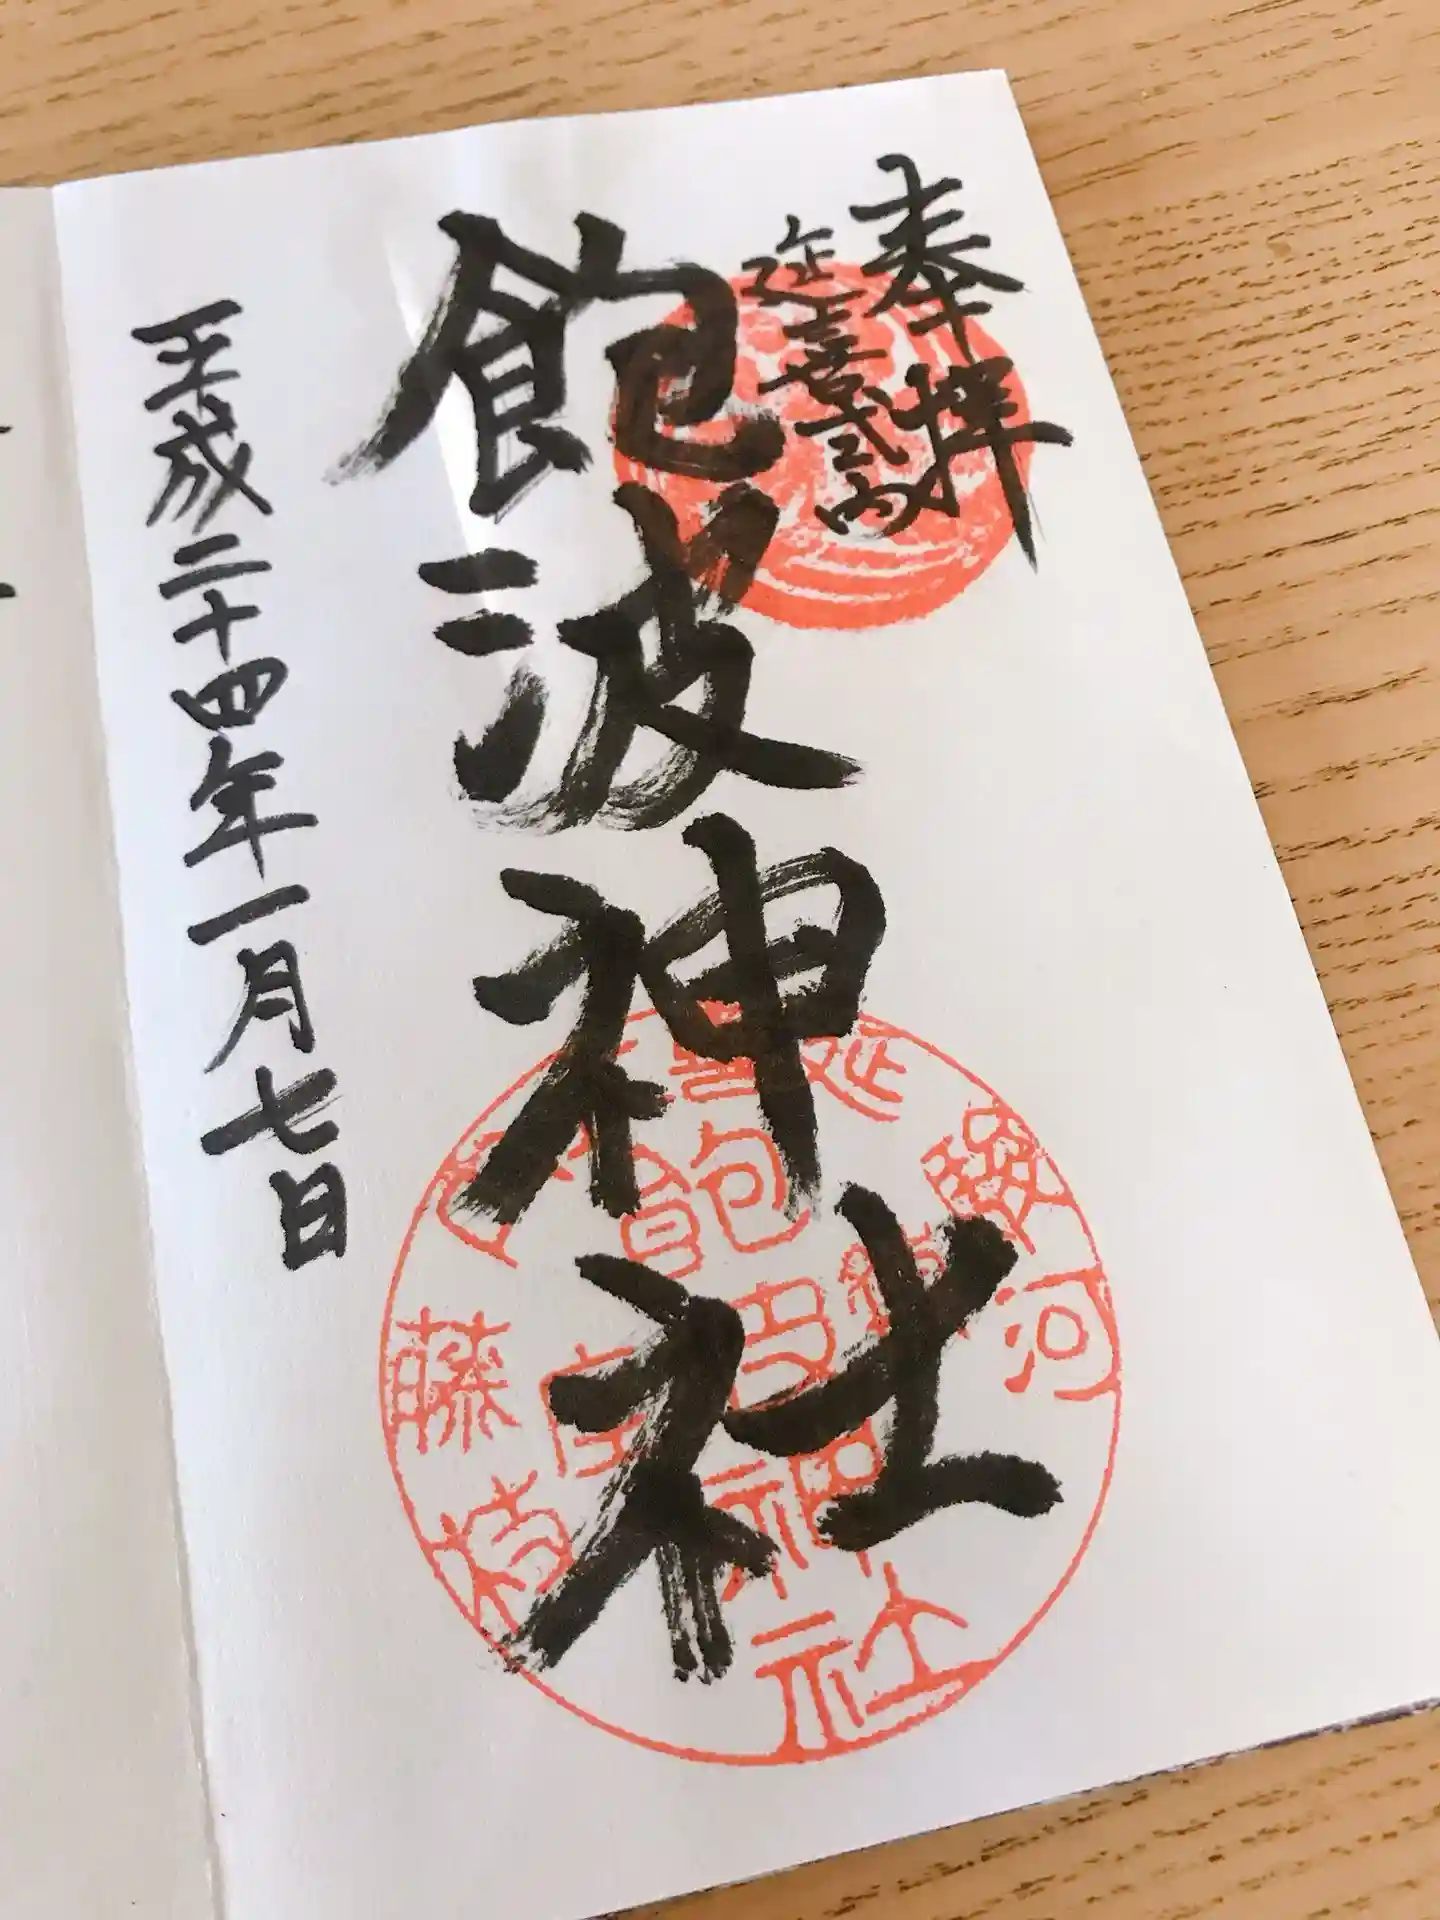 奉拝
延喜式内
飽波神社
平成二十四年一月七日
延喜
駿河
藤枝
飽波神社
社